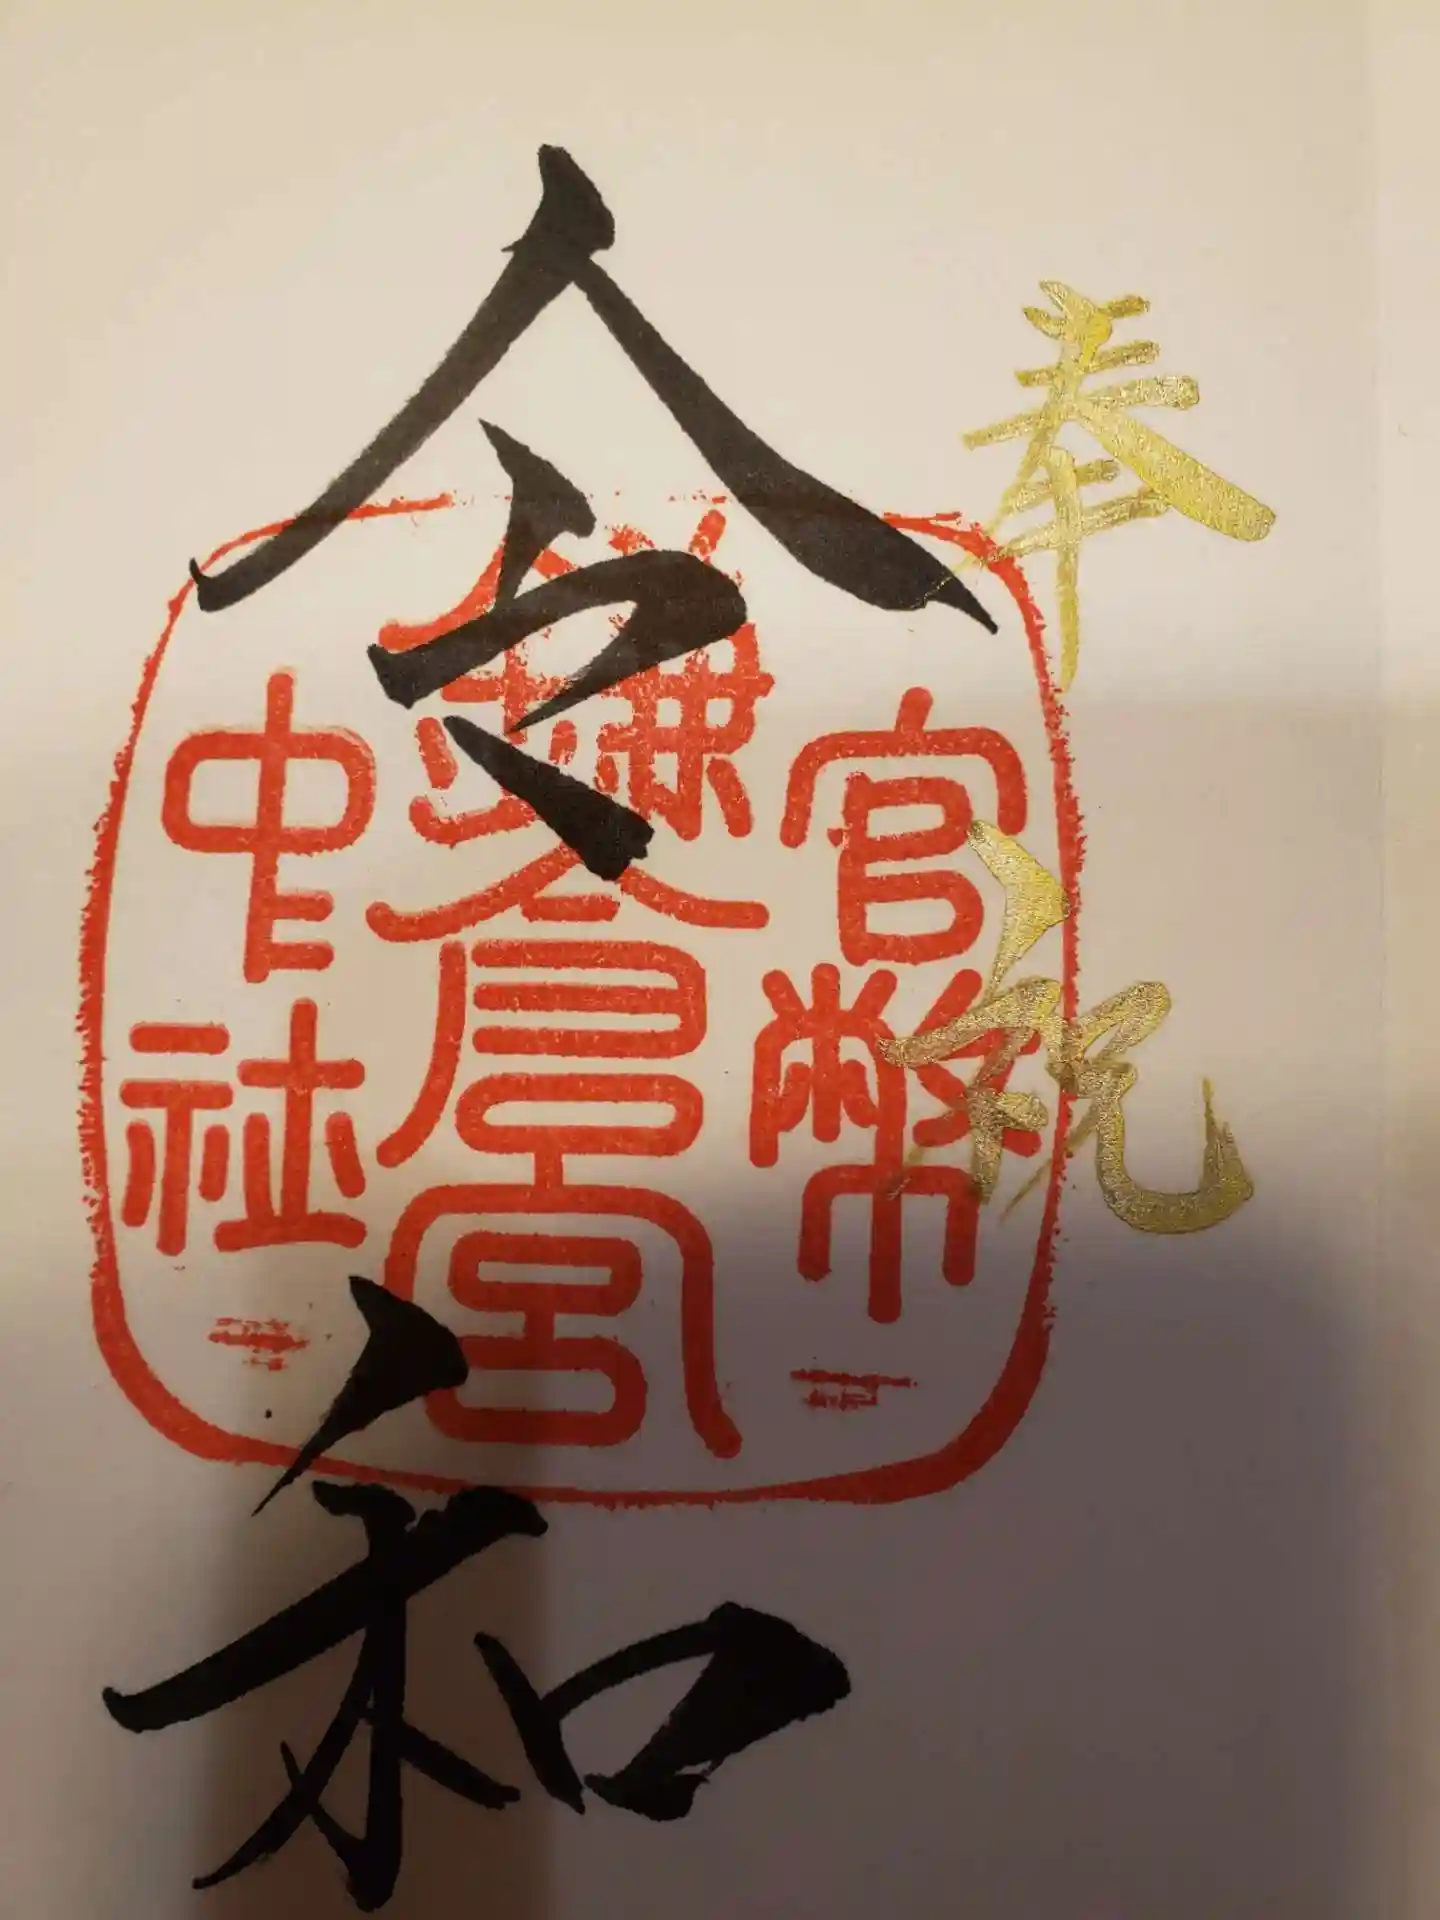 奉祝
官幣
鎌倉宮
中社
令和